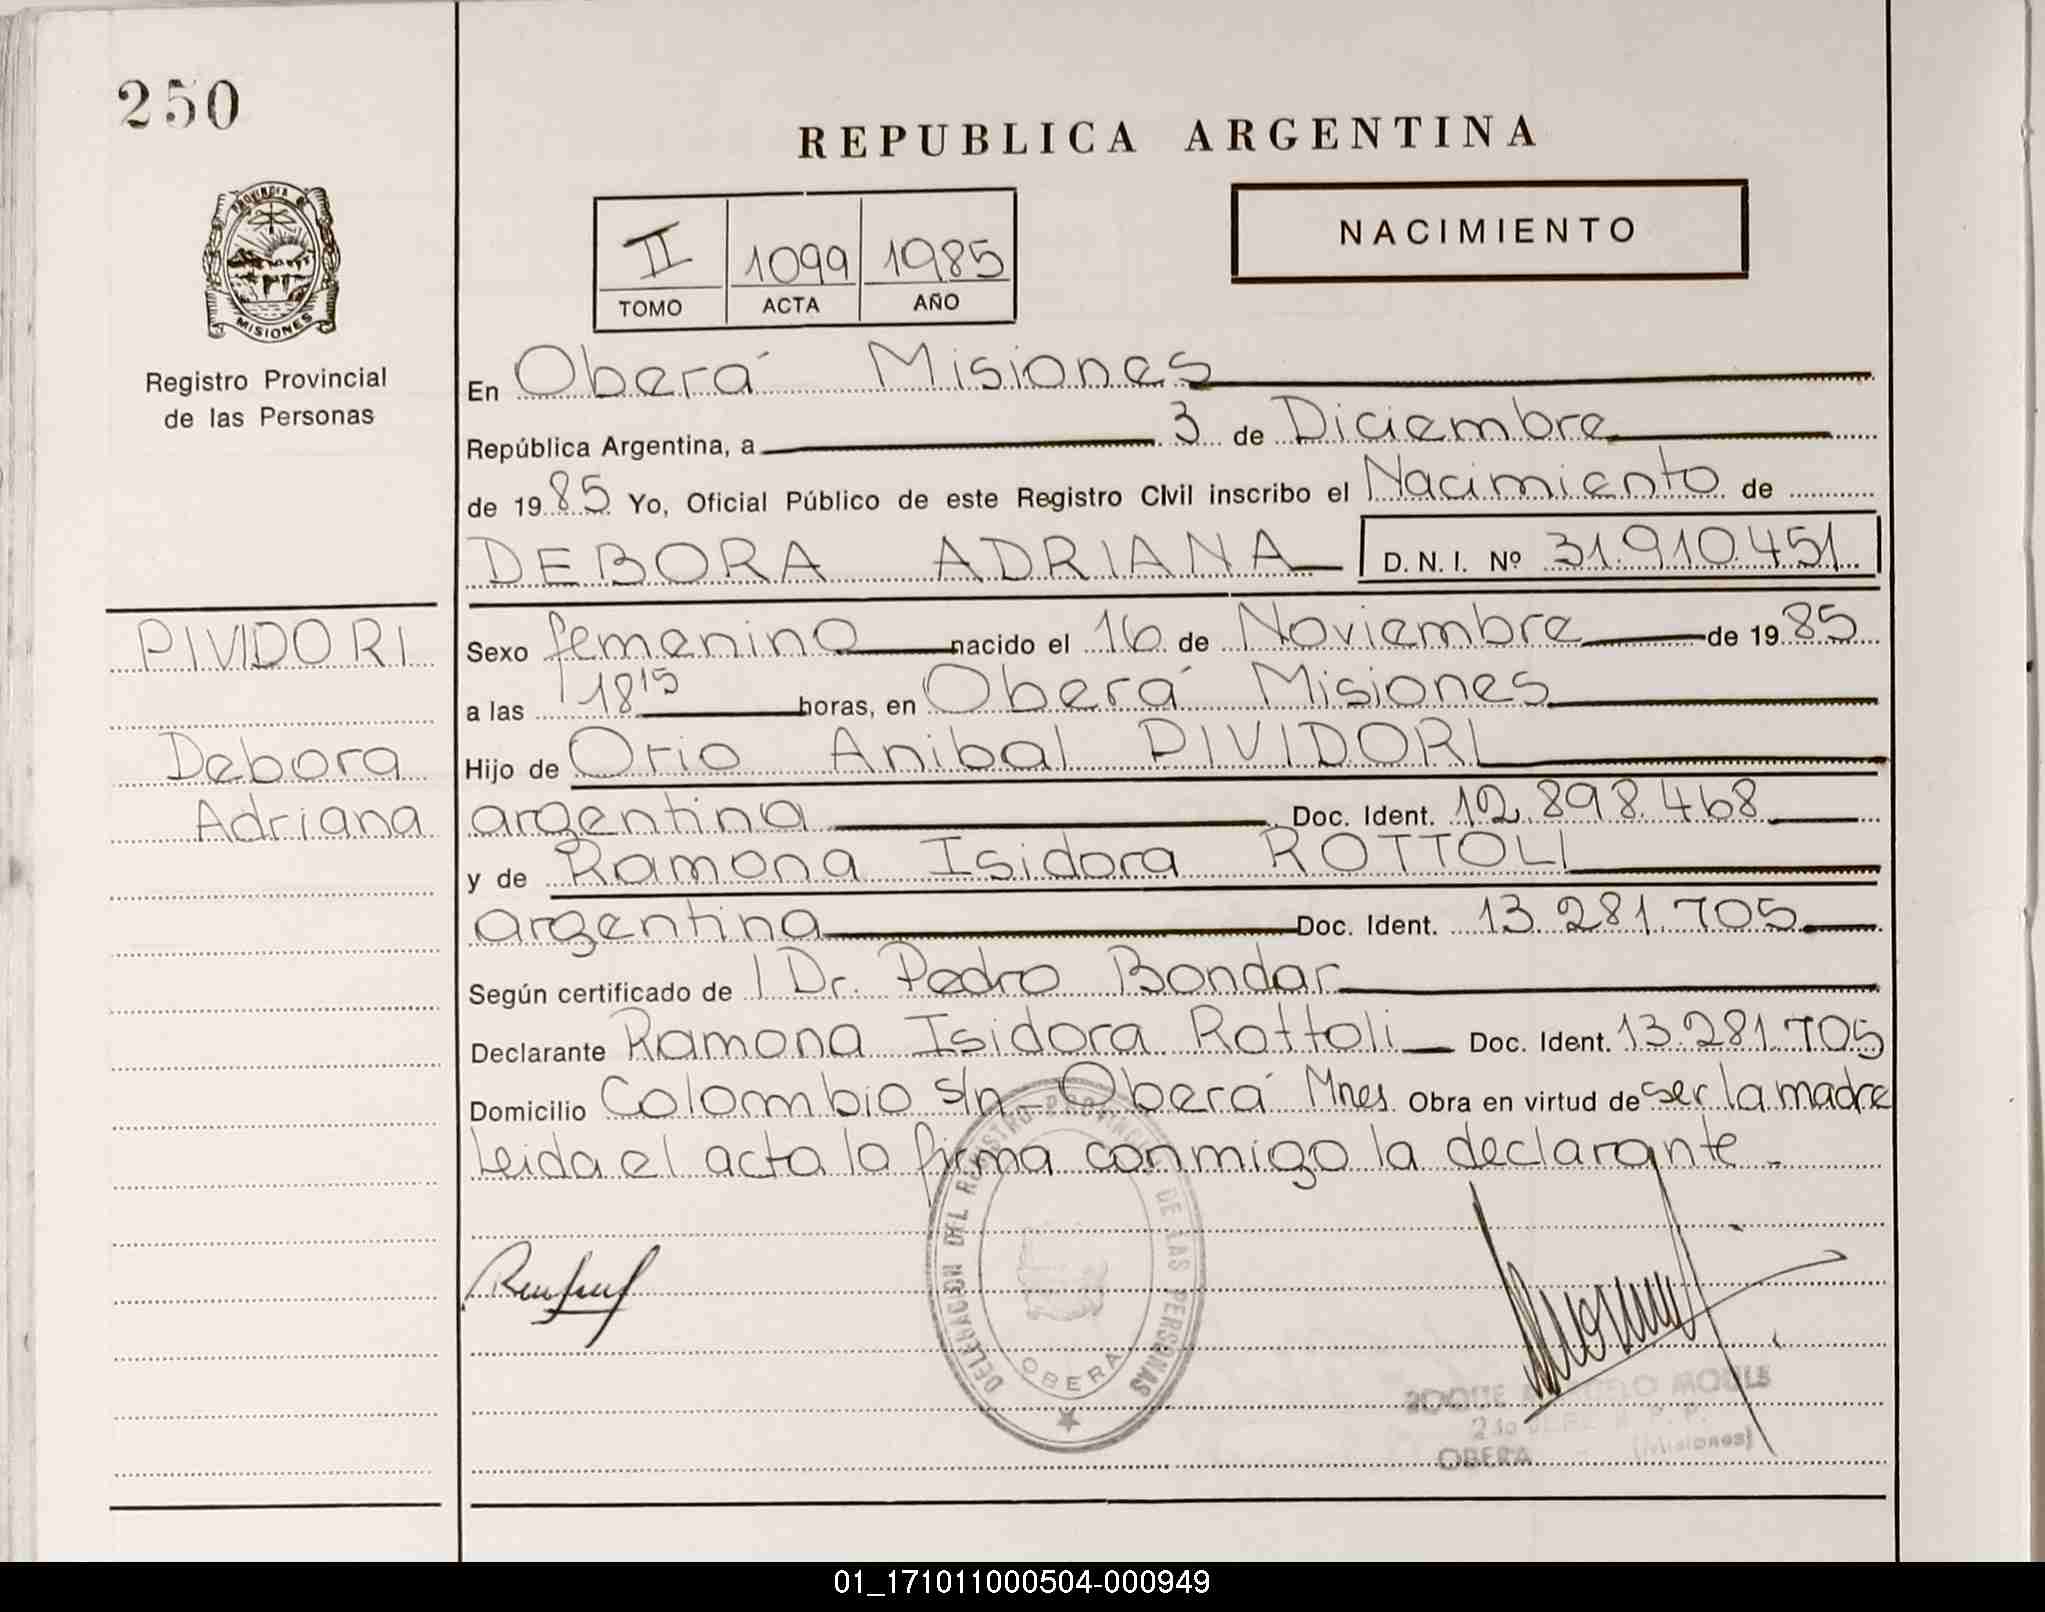 250
PROVINCIA DE
MISIONES
Registro Provincial
de las Personas
REPUBLICA ARGENTINA
II 1099 1985
TOMO ACTA AÑO
NACIMIENTO
En Oberá Misiones
República Argentina, a 3 de Diciembre
de 1985 Yo, Oficial Público de este Registro Civil inscribo el Nacimiento de
DEBORA ADRIANA D. N. I. Nº 31.910.451
PIVIDORI
Debora
Adriana
Sexo femenino nacido el 16 de Noviembre de 1985
a las 18 15 horas, en Oberá Misiones
Hijo de Orio Anibal PIVIDORI
argentina Doc. Ident. 12.898.468
y de Ramona Isidora ROTTOLI
argentina Doc. Ident. 13.281.705
Según certificado de Dr. Pedro Bondar
Declarante Ramona Isidora Rottoli Doc. Ident. 13.281.705
Domicilio Colombia s/n - Oberá Mnes Obra en virtud de ser la madre
Leida el acta la firma conmigo la declarante -
DELEGACION DEL REGISTRO PROVINCIAL DE LAS PERSONAS
OBERA
OBERA (Misiones)
01_171011000504-000949